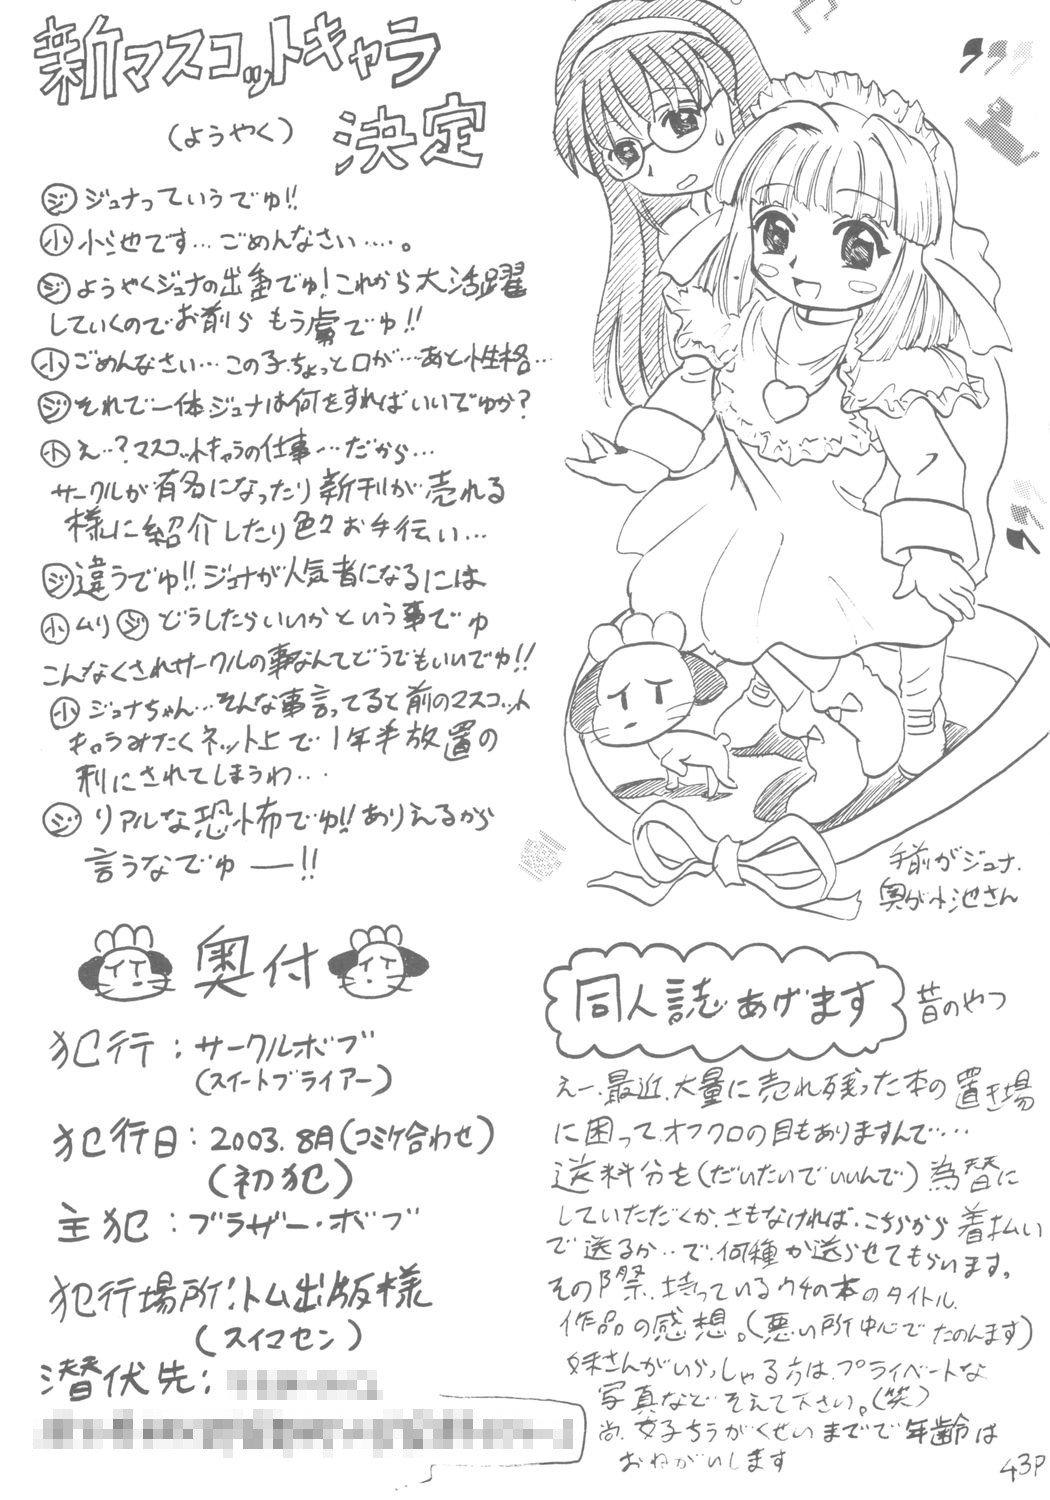 新マスコットキャラ
決定
(ようやく)
ジ ジュナっていうでゅ!!
小 小池です…ごめんなさい….。
ジ ようやくジュナの出番でゅ!これから大活躍
していくのでお前ら もう虜でゅ!!
小 ごめんなさい…この子、ちょっと口が…あと性格…
ジ それで一体ジュナは何をすればいいでゅか?
小 え…?マスコットキャラの仕事…だから…
サークルが有名になったり新刊が売れる
様に紹介したり色々お手伝い…
ジ 違うでゅ!!ジュナが人気者になるには
小 ムリ ジ どうしたらいいかという事でゅ
こんなくされサークルの事なんてどうでもいいでゅ!!
小 ジュナちゃん…そんな事言ってると前のマスコット
キャラみたくネット上で1年半放置の
刑にされてしまうわ…
ジ リアルな恐怖でゅ!!ありえるから
言うなでゅ―!!
手前がジュナ.
奥が小池さん
奥付
犯行:サークルボブ
(スイートブライアー)
犯行日:2003.8月(コミケ合わせ)
(初犯)
主犯:ブラザー・ボブ
犯行場所:トム出版様
(スイマセン)
潜伏先:
同人誌あげます
昔のやつ
えー、最近、大量に売れ残った本の置き場
に困って、オフクロの目もありますんで…
送料分を(だいたいでいいんで)為替に
していただくか、さもなければ、こちらから着払い
で送るか…で、何種か送らせてもらいます。
その際、持っているウチの本のタイトル、
作品の感想。(悪い所中心でたのんます)
妹さんがいらっしゃる方は、プライベートな
写真などそえて下さい。(笑)
尚、女子ちうがくせいまでで年齢は
おねがいします
43P